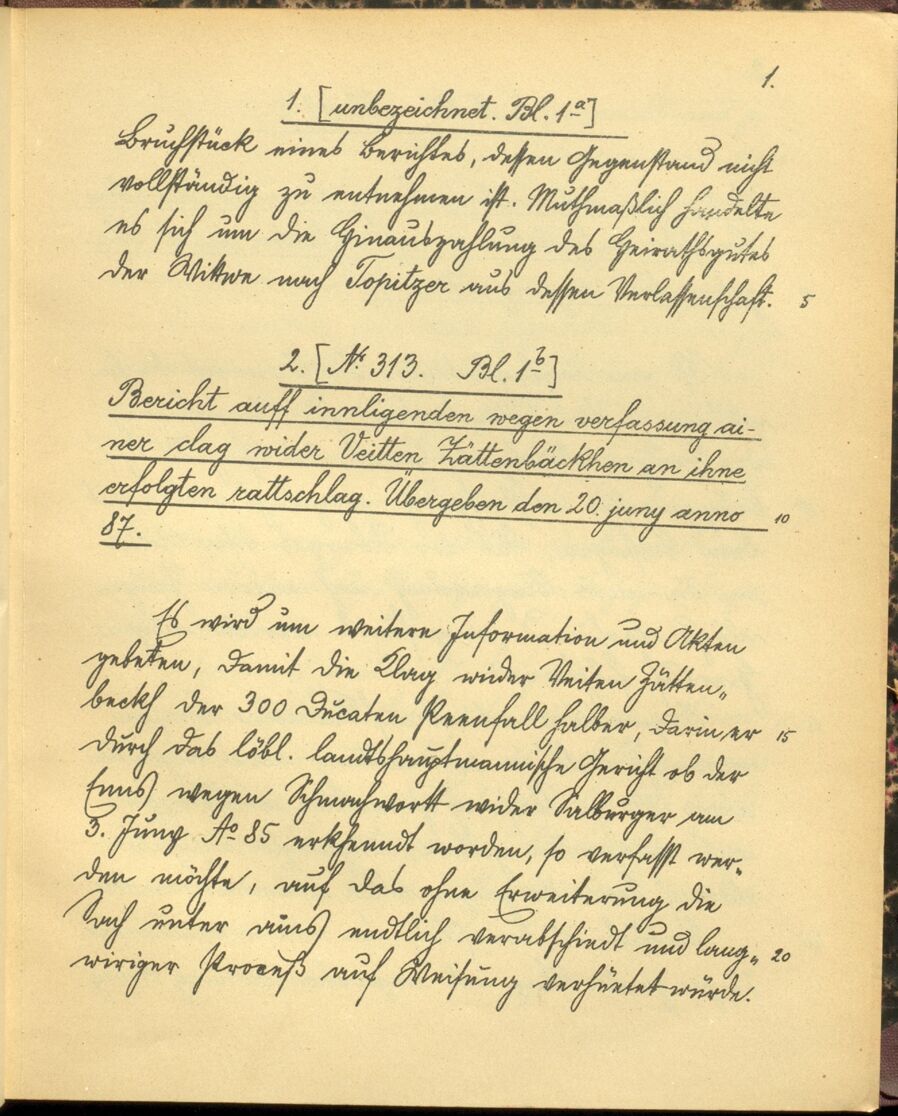 1.
1. [unbezeichnet. Bl. 1a]
Bruchstück eines Berichtes, dessen Gegenstand nicht
vollständig zu entnehmen ist. Muthmaßlich handelte
es sich um die Hinauszahlung des Heirathsgutes
der Wittwe nach Topitzer aus dessen Verlassenschaft. 5
2. [Nr. 313. Bl. 1b]
Bericht auff innligenden wegen verfassung ai-
ner clag wider Veitten Zättenbäckhen an ihne
erfolgten rattschlag. Übergeben den 20. juny anno 10
87.
Es wird um weitere Information und Akten
gebeten, damit die Klag wider Veiten Zätten„
beckh der 300 Ducaten Peenfall halber, darin er 15
durch das löbl. landtshauptmannische Gericht ob der
Enns wegen Schmachwortt wider Salburger am
3. Juny Ao 85 erkhenndt worden, so verfasst wer„
den möchte, auf das ohne Erweiterung die
Sach unter ains endtlich verabschiedt und lang„ 20
wiriger Proceß auf Weisung verhüetet würde.